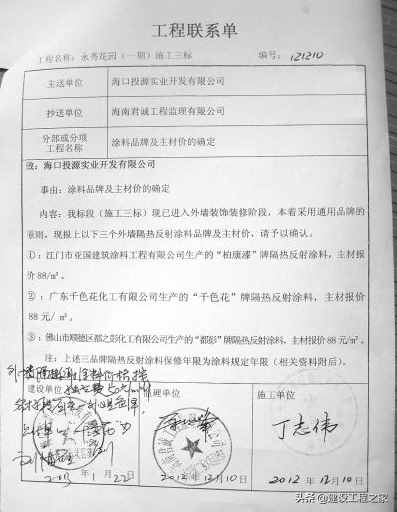 工程联系单
工程名称：永秀花园（一期）施工三标 编号：121210
主送单位 海口投源实业开发有限公司
抄送单位 海南君诚工程监理有限公司
分部或分项工程名称 涂料品牌及主材价的确定
致：海口投源实业开发有限公司
事由：涂料品牌及主材价的确定
内容：我标段（施工三标）现已进入外墙装饰装修阶段，本着采用通用品牌的
原则，现报上以下三个外墙隔热反射涂料品牌及主材价，请予以确认。
①：江门市亚国建筑涂料工程有限公司生产的“柏康漆”牌隔热反射涂料，主材报
价 88/㎡。
②：广东千色花化工有限公司生产的“千色花”牌隔热反射涂料，主材报价
88 元/㎡。
③：佛山市顺德区都之彭化工有限公司生产的“都彭”牌隔热反射涂料，主材报价 88 元/㎡。
注：上述三品牌隔热反射涂料保修年限为涂料规定年限（相关资料附后）。
建设单位 监理单位 施工单位
丁志伟
年 1 月 22
2012 年 12 月 10 日
2012 年 12 月 10 日
头条 @建设工程之家